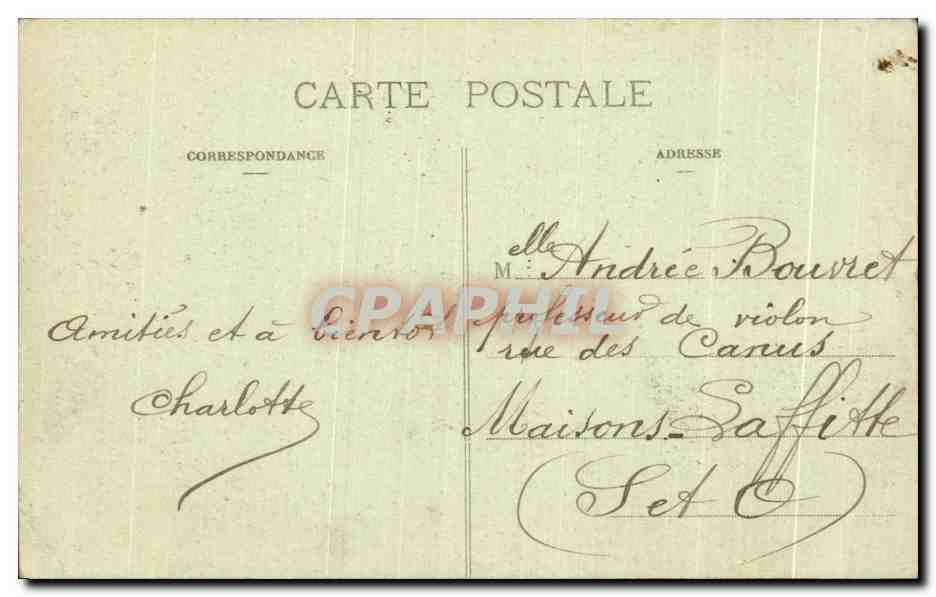 CARTE POSTALE
CORRESPONDANCE
Amitiés et à bientôt
Charlotte
ADRESSE
Melle Andrée Bouvret
professeur de violon
rue des Canus
Maisons-Laffitte
(S et O)
CPAPHIL